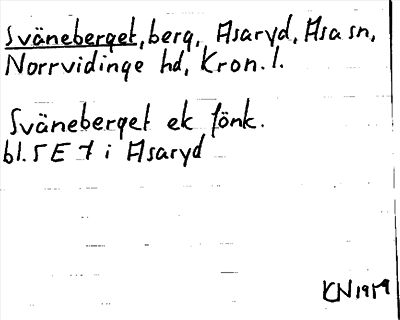 Sväneberget, berg, Asaryd, Asa sn,
Norrvidinge hd, Kron. l.
Sväneberget ek fönk.
bl. 5 E 7 i Asaryd